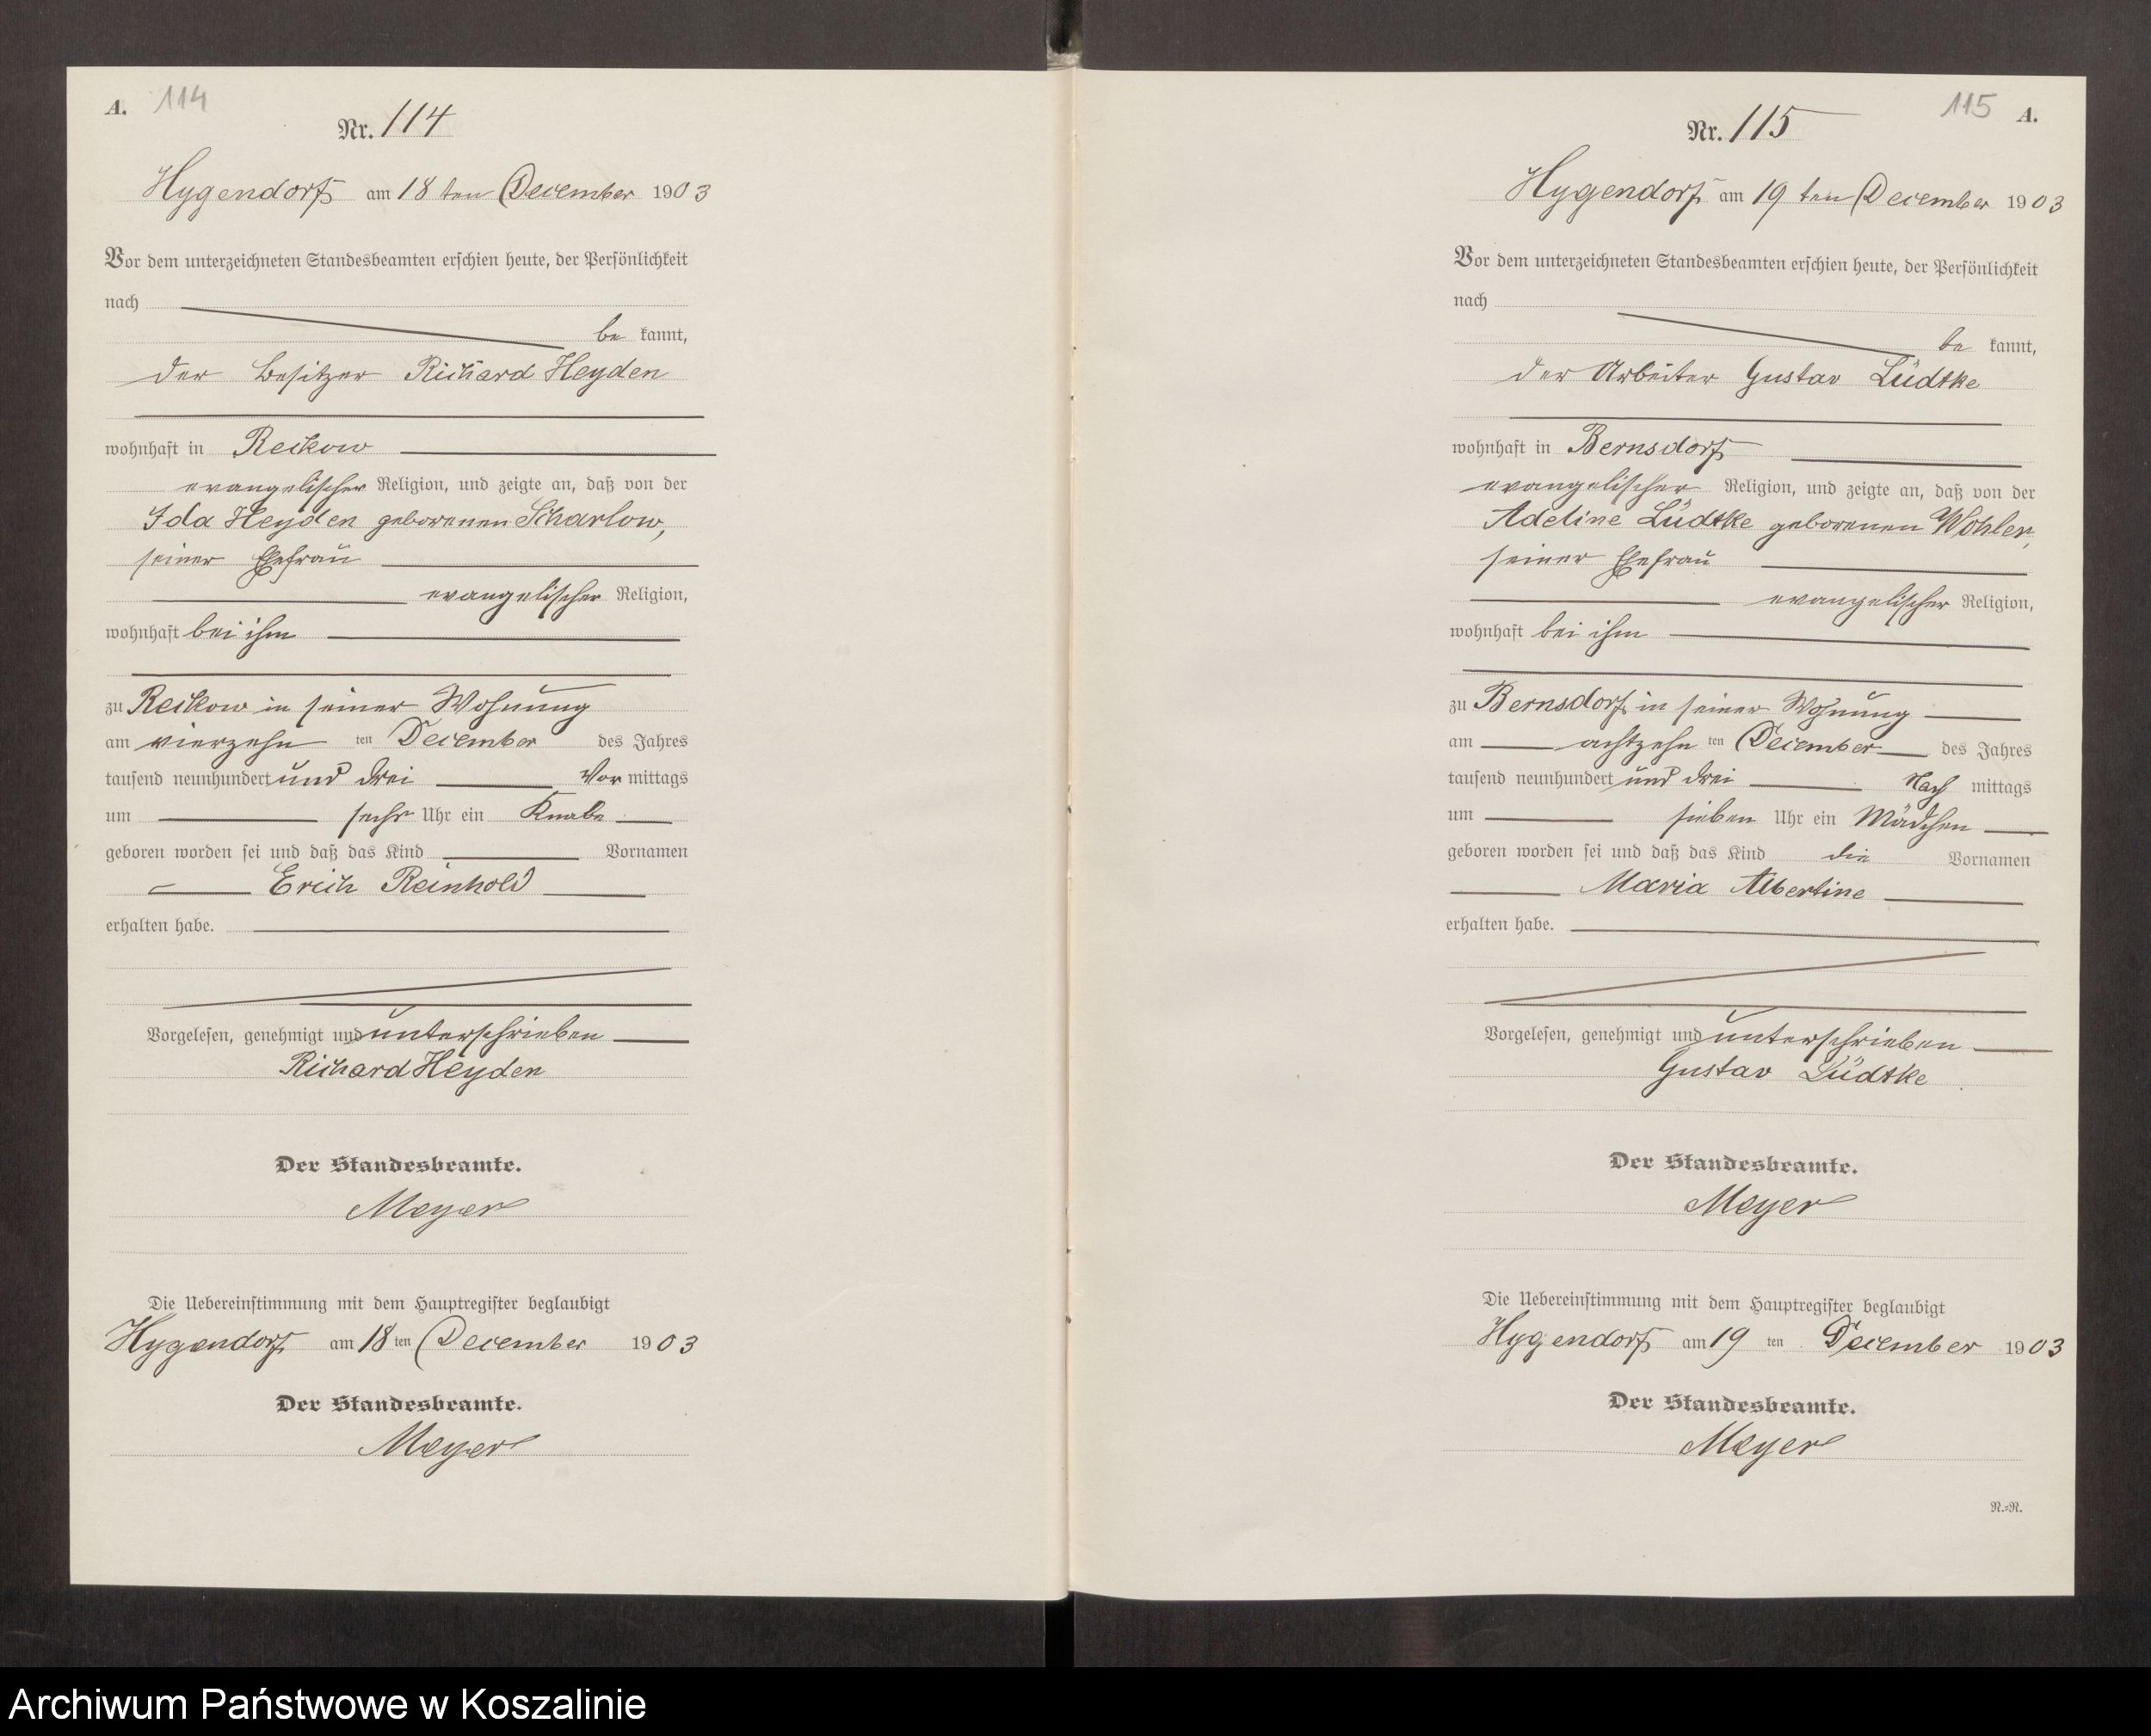 A. 114
Nr. 114
Hygendorf am 18 ten December 1903
Vor dem unterzeichneten Standesbeamten erschien heute, der Persönlichkeit
nach
be kannt,
der Besitzer Richard Heyden
wohnhaft in Reckow
evangelischer Religion, und zeigte an, daß von der
Ida Heyden geborenen Scharlow,
seiner Ehefrau
evangelischer Religion,
wohnhaft bei ihm
zu Reckow in seiner Wohnung
am vierzehn ten December des Jahres
tausend neunhundert und drei Vor mittags
um sechs Uhr ein Knabe
geboren worden sei und daß das Kind Vornamen
Erich Reinhold
erhalten habe.
Vorgelesen, genehmigt und unterschrieben
Richard Heyden
Der Standesbeamte.
Meyer
Die Uebereinstimmung mit dem Hauptregister beglaubigt
Hygendorf am 18 ten December 1903
Der Standesbeamte.
Meyer
115 A.
Nr. 115
Hygendorf am 19 ten December 1903
Vor dem unterzeichneten Standesbeamten erschien heute, der Persönlichkeit
nach
be kannt,
der Arbeiter Gustav Lüdtke
wohnhaft in Bernsdorf
evangelischer Religion, und zeigte an, daß von der
Adeline Lüdtke geborenen Wohler,
seiner Ehefrau
evangelischer Religion,
wohnhaft bei ihm
zu Bernsdorf in seiner Wohnung
am achtzehn ten December des Jahres
tausend neunhundert und drei Nach mittags
um sieben Uhr ein Mädchen
geboren worden sei und daß das Kind die Vornamen
Maria Albertine
erhalten habe.
Vorgelesen, genehmigt und unterschrieben
Gustav Lüdtke
Der Standesbeamte.
Meyer
Die Uebereinstimmung mit dem Hauptregister beglaubigt
Hygendorf am 19 ten December 1903
Der Standesbeamte.
Meyer
R.=R.
Archiwum Państwowe w Koszalinie